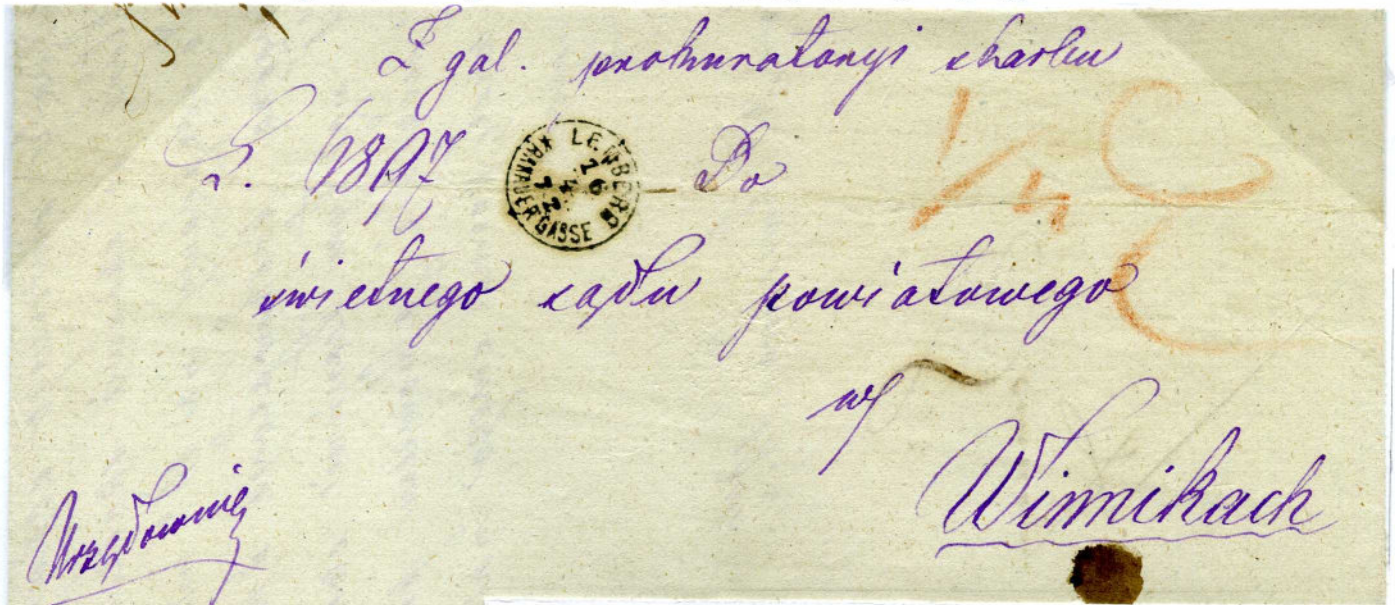 Z gal. prokuratoryi skarbu
L. 6897 Do
LEMBERG
KRAKAUER GASSE
świetnego sądu powiatowego
w
Winnikach
Urzędownie